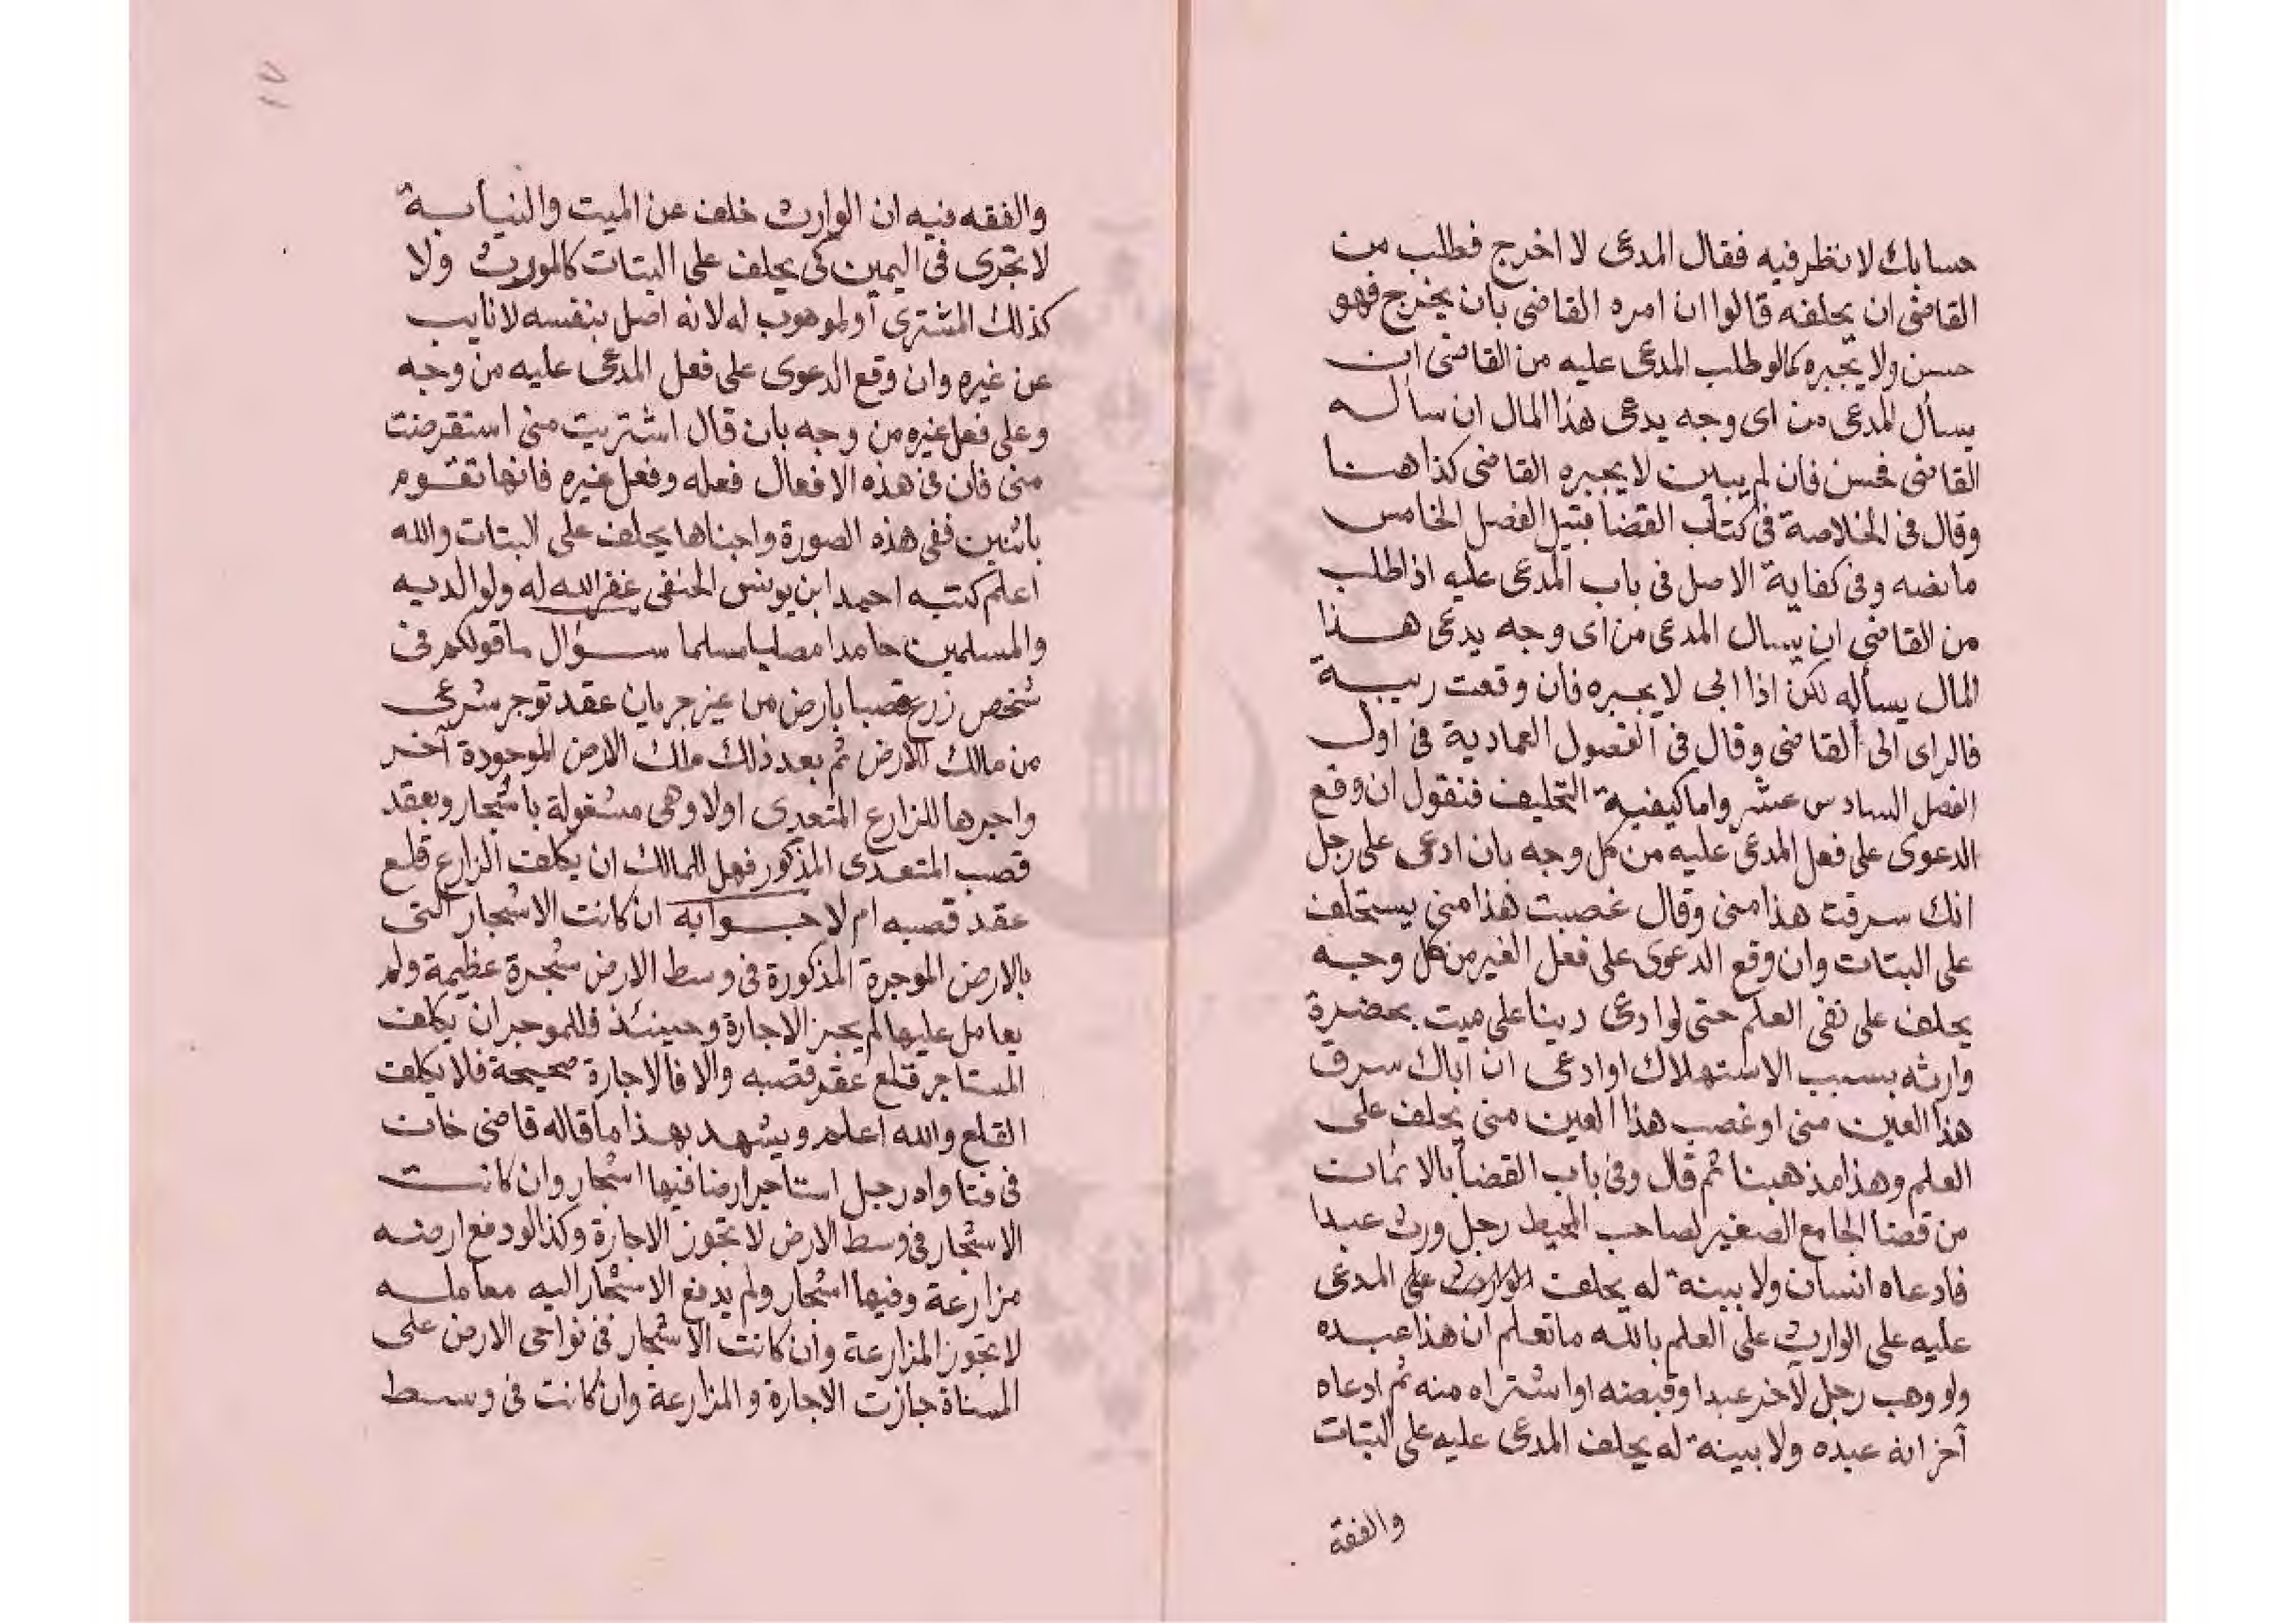 حسابك لانظر فيه فقال المدعى لا اخرج فطلب من
القاضى ان يحلفه قالوا ان امره القاضى بان يخرج فهو
حسن ولا يجبره كما لو طلب المدعى عليه من القاضى ان
يسأل المدعى من اى وجه يدعى هذا المال ان سأله
القاضى فحسن فان لم يبين لا يجبره القاضى كذا هنا
وقال فى الخلاصة فى كتاب القضا قبيل الفصل الخامس
مانصه وفى كفاية الاصل فى باب المدعى عليه اذا طلب
من القاضى ان يسال المدعى من اى وجه يدعى هذا
المال يسأله لكن اذا ابى لا يجبره فان وقعت ريبة
فالراى الى القاضى وقال فى الفصول العمادية فى اول
الفصل السادس عشر واما كيفية التحليف فنقول ان وقع
الدعوى على فعل المدعى عليه من كل وجه بان ادعى على رجل
انك سرقت هذا منى وقال غصبت هذا منى يستحلف
على البتات وان وقع الدعوى على فعل الغير من كل وجه
يحلف على نفى العلم حتى لو ادعى دينا على ميت بحضرة
وارثه بسبب الاستهلاك او ادعى ان اباك سرق
هذا العين منى او غصب هذا العين منى يحلف على
العلم وهذا مذهبنا ثم قال وفى باب القضا بالايمان
من قضا الجامع الصغير لصاحب المحيط رجل ورث عبدا
فادعاه انسان ولا بينة له يحلف الوارث على المدعى
عليه على الوارث على العلم بالله ماتعلم ان هذا عبده
ولو وهب رجل لآخر عبدا وقبضه او اشتراه منه ثم ادعاه
آخر انه عبده ولا بينة له يحلف المدعى عليه على البتات
والفقة
والفقه فيه ان الوارث خلف عن الميت والنيابة
لا تجرى فى اليمين كى يحلف على البتات كالمورث ولا
كذلك المشترى أو الموهوب له لانه اصل بنفسه لا نايب
عن غيره وان وقع الدعوى على فعل المدعى عليه من وجه
وعلى فعل غيره من وجه بان قال اشتريت منى استقرضت
منى فان فى هذه الافعال فعله وفعل غيره فانها تقوم
باثنين ففى هذه الصورة واجناها يحلف على البتات والله
اعلم كتبه احمد ابن يونس الحنفى غفر الله له ولوالديه
والمسلمين حامدا مصليا مسلما سؤال ماقولكم فى
شخص زرع قصبا بارض من غير جريان عقد توجر شرعى
من مالك للارض ثم بعد ذلك ملك الارض الموجودة آخر
واجرها للزارع المتعدى اولا وهى مشغولة باشجار وبعقد
قصب المتعدى المذكور فهل للمالك ان يكلف الزارع قلع
عقد قصبه ام لا جوابه ان كانت الاشجار التى
بالارض الموجرة المذكورة فى وسط الارض شجرة عظيمة ولم
يعامل عليها لم يجز الاجارة وحينئذ فللموجر ان يكلف
المستاجر قلع عقد قصبه والا فالاجارة صحيحة فلا يكلف
القلع والله اعلم ويشهد بهذا ماقاله قاضى خان
فى فتاواه رجل استاجر ارضا فيها اشجار وان كانت
الاشجار فى وسط الارض لا تجوز الاجارة وكذا لو دفع ارضه
مزارعة وفيها اشجار ولم يدفع الاشجار اليه معامله
لا تجوز المزارعة وان كانت الاشجار فى نواحى الارض على
المسناة جازت الاجارة والمزارعة وان كانت فى وسط